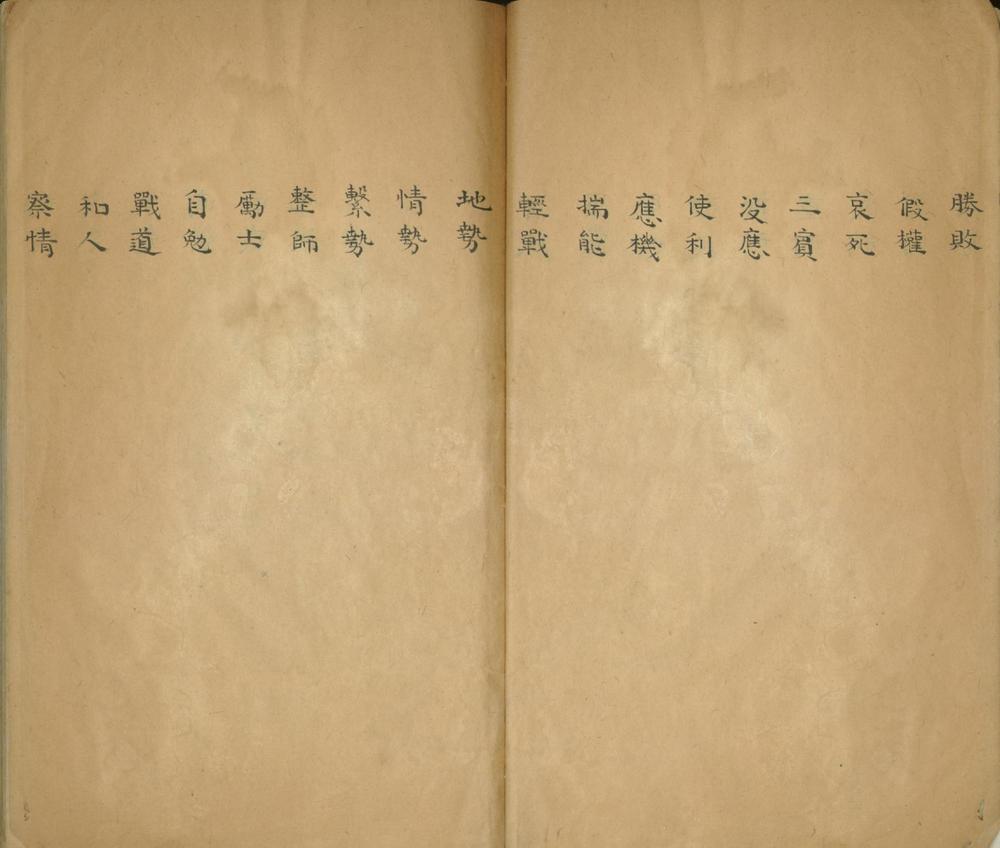 勝敗
假權
哀死
三賓
没應
使利
應機
揣能
輕戰
地勢
情勢
繫勢
整師
厲士
自勉
戰道
和人
察情